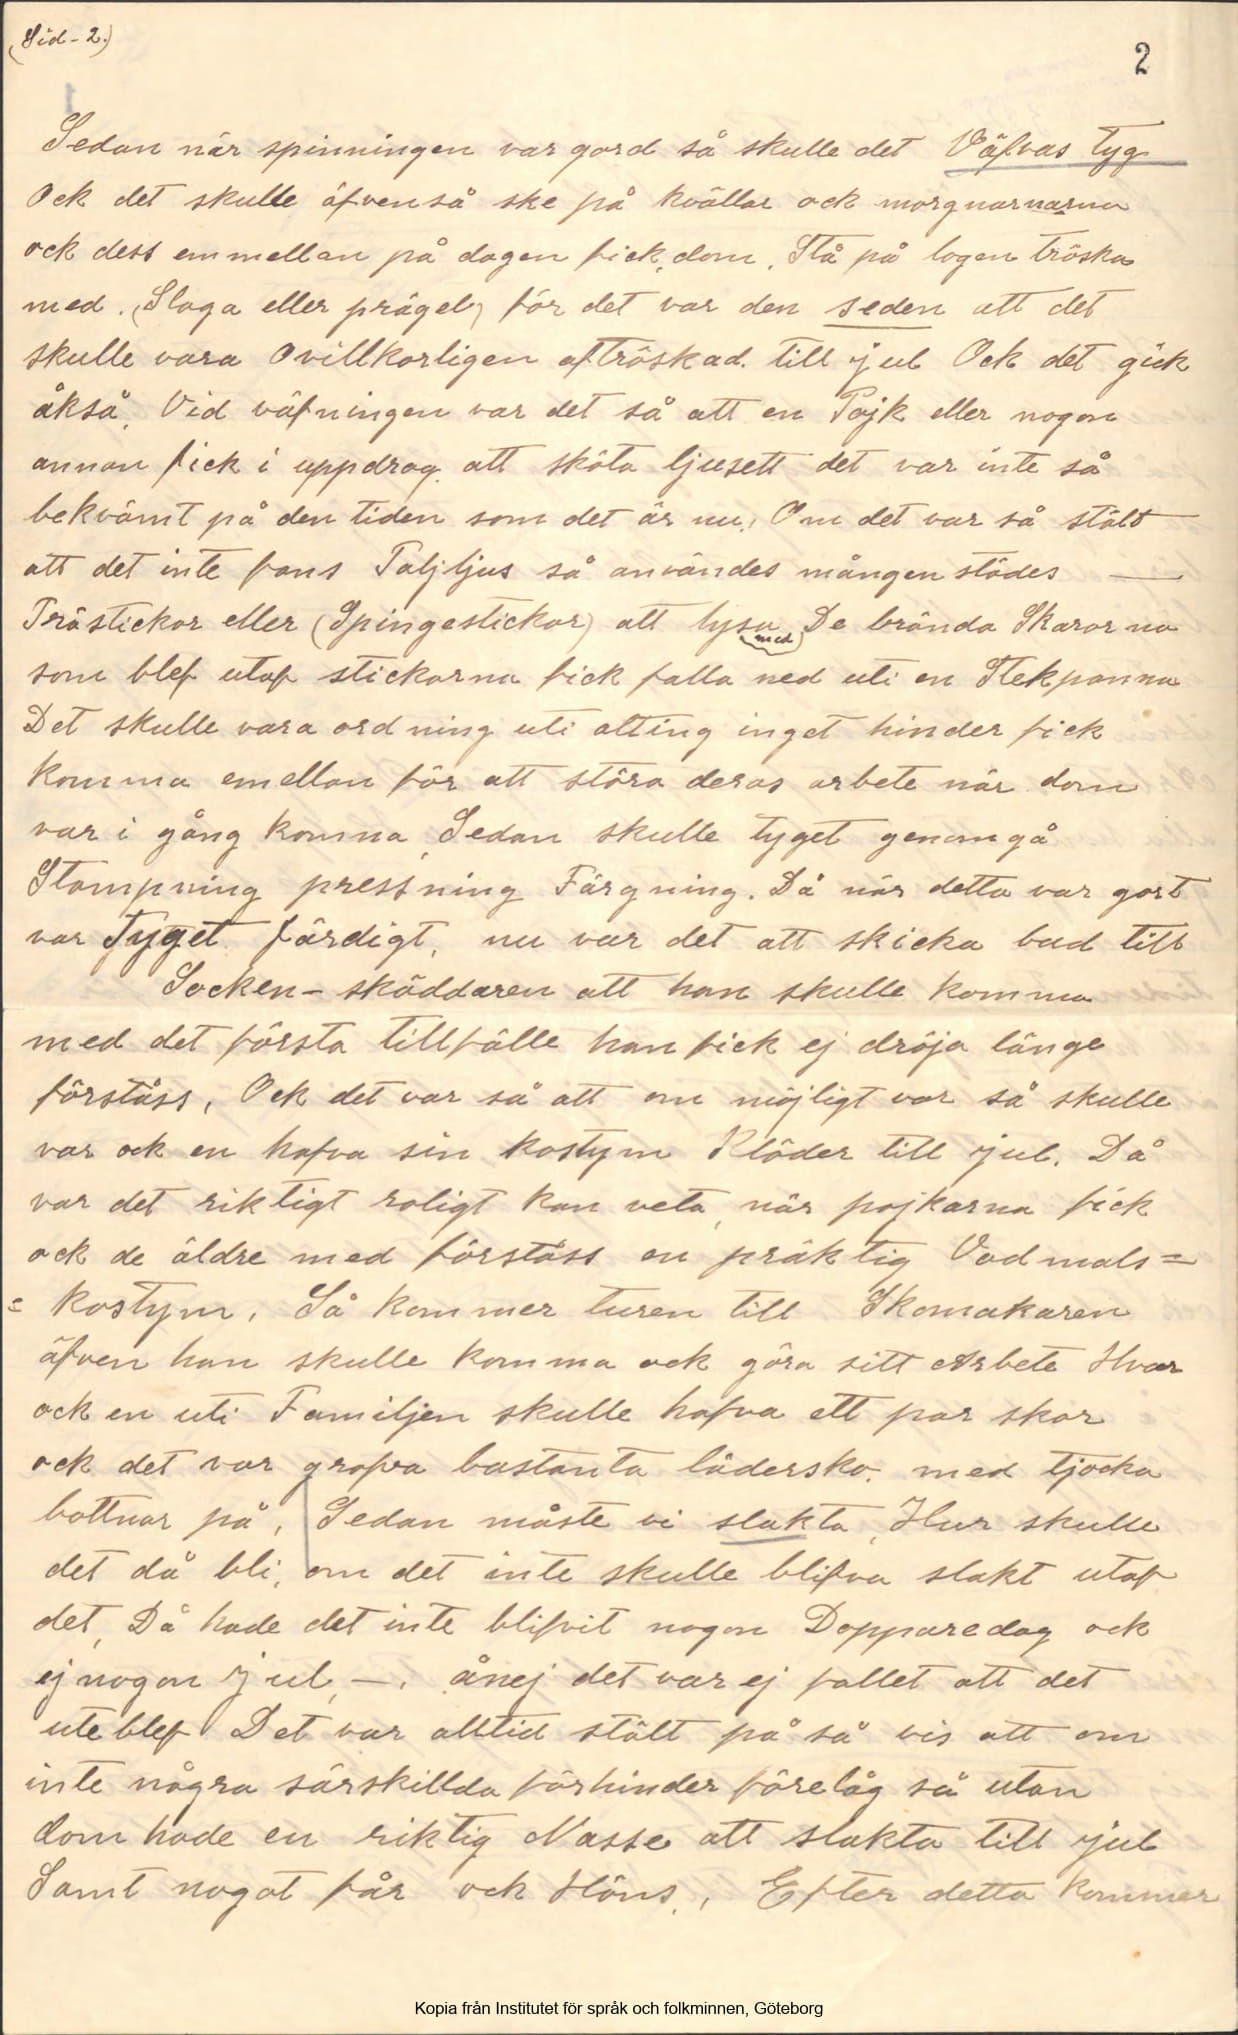 (Sid - 2.)
2
Sedan när spinningen var gord så skulle det Väfvas Tyg
Ock det skulle äfvenså ske på kvällar ock morgnarnarna
ock dess emmellan på dagen fick dom. Stå på logen tröska
med. (Slaga eller prägel) för det var den seden att det
skulle vara Ovillkorligen aftröskad. till jul Ock det gick
åkså. Vid väfningen var det så att en Pojk eller nogon
annan fick i uppdrag. att sköta ljusett det var inte så
bekvämt på den tiden som det är nu. Om det var så stält
att det inte fans Taljljus så användes mången städes —
Trästickor eller (Spingestickor) att lysa (med) De brända Skarorna
som blef utaf stickorna fick falla ned uti en Stekpanna
Det skulle vara ordning uti alting inget hinder fick
komma emellan för att störa deras arbete när dom
var i gång komna, Sedan skulle tyget genomgå
Stampning pressning Färgning. Då när detta var gort
var Tyget färdigt, nu var det att skicka bud till
Socken- skäddaren att han skulle komma
med det första tillfälle han fick ej dröja länge
förståss, Ock det var så att om möjligt var så skulle
var ock en hafva sin kostym Kläder till jul. Då
var det riktigt roligt kan veta, när pojkarna fick
ock de äldre med förståss en präktig Vadmals=
= kostym, Så kommer turen till Skomakaren
äfven han skulle komma ock göra sitt Arbete Hvar
ock en uti Familjen skulle hafva ett par skor
ock det var grofva bastanta lädersko. med tjocka
bottnar på, Sedan måste vi slakta, Hur skulle
det då bli, om det inte skulle blifva slakt utaf
det, Då hade det inte blifvit nogon Dopparedag ock
ej nogon jul, —, ånej det var ej fallet att det
uteblef Det var alltid stält på så vis att om
inte några särskillda förhinder förelåg så utan
dom hade en riktig Nasse att slakta till jul
Samt nogot får ock Höns., Efter detta kommer
Kopia från Institutet för språk och folkminnen, Göteborg